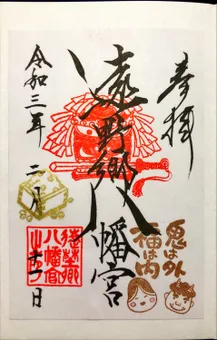 奉拝
鬼は外
福は内
遠野郷八幡宮
令和三年
二月
日
八幡宮